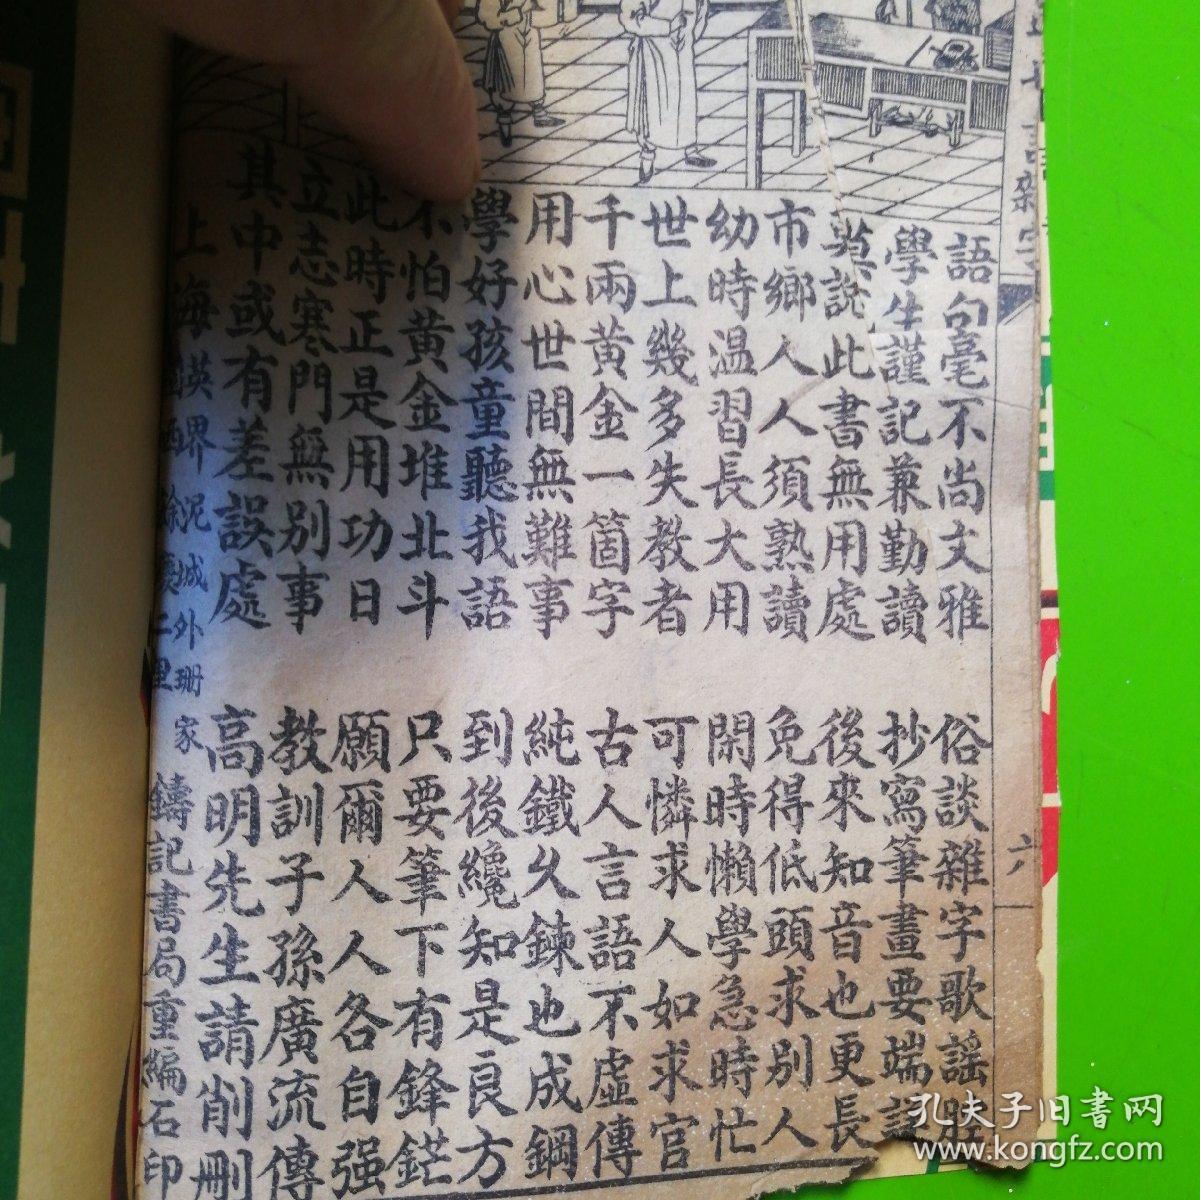 語句毫不尚文雅
俗談雜字歌謠
學生謹記兼勤讀
抄寫筆畫要端
莫說此書無用處
後來知音也更長
市鄉人人須熟讀
免得低頭求別人
幼時温習長大用
閑時懶學急時忙
世上幾多失教者
可憐求人如求官
千兩黃金一箇字
古人言語不虛傳
用心世間無難事
純鐵久鍊也成鋼
學好孩童聽我語
到後纔知是良方
不怕黃金堆北斗
只要筆下有鋒鋩
此時正是用功日
願爾人人各自强
立志寒門無別事
教訓子孫廣流傳
其中或有差誤處
高明先生請削刪
上海英界泥城外珊家
二里
鑄記書局重編石印
六
孔夫子旧書网
www.kongfz.com